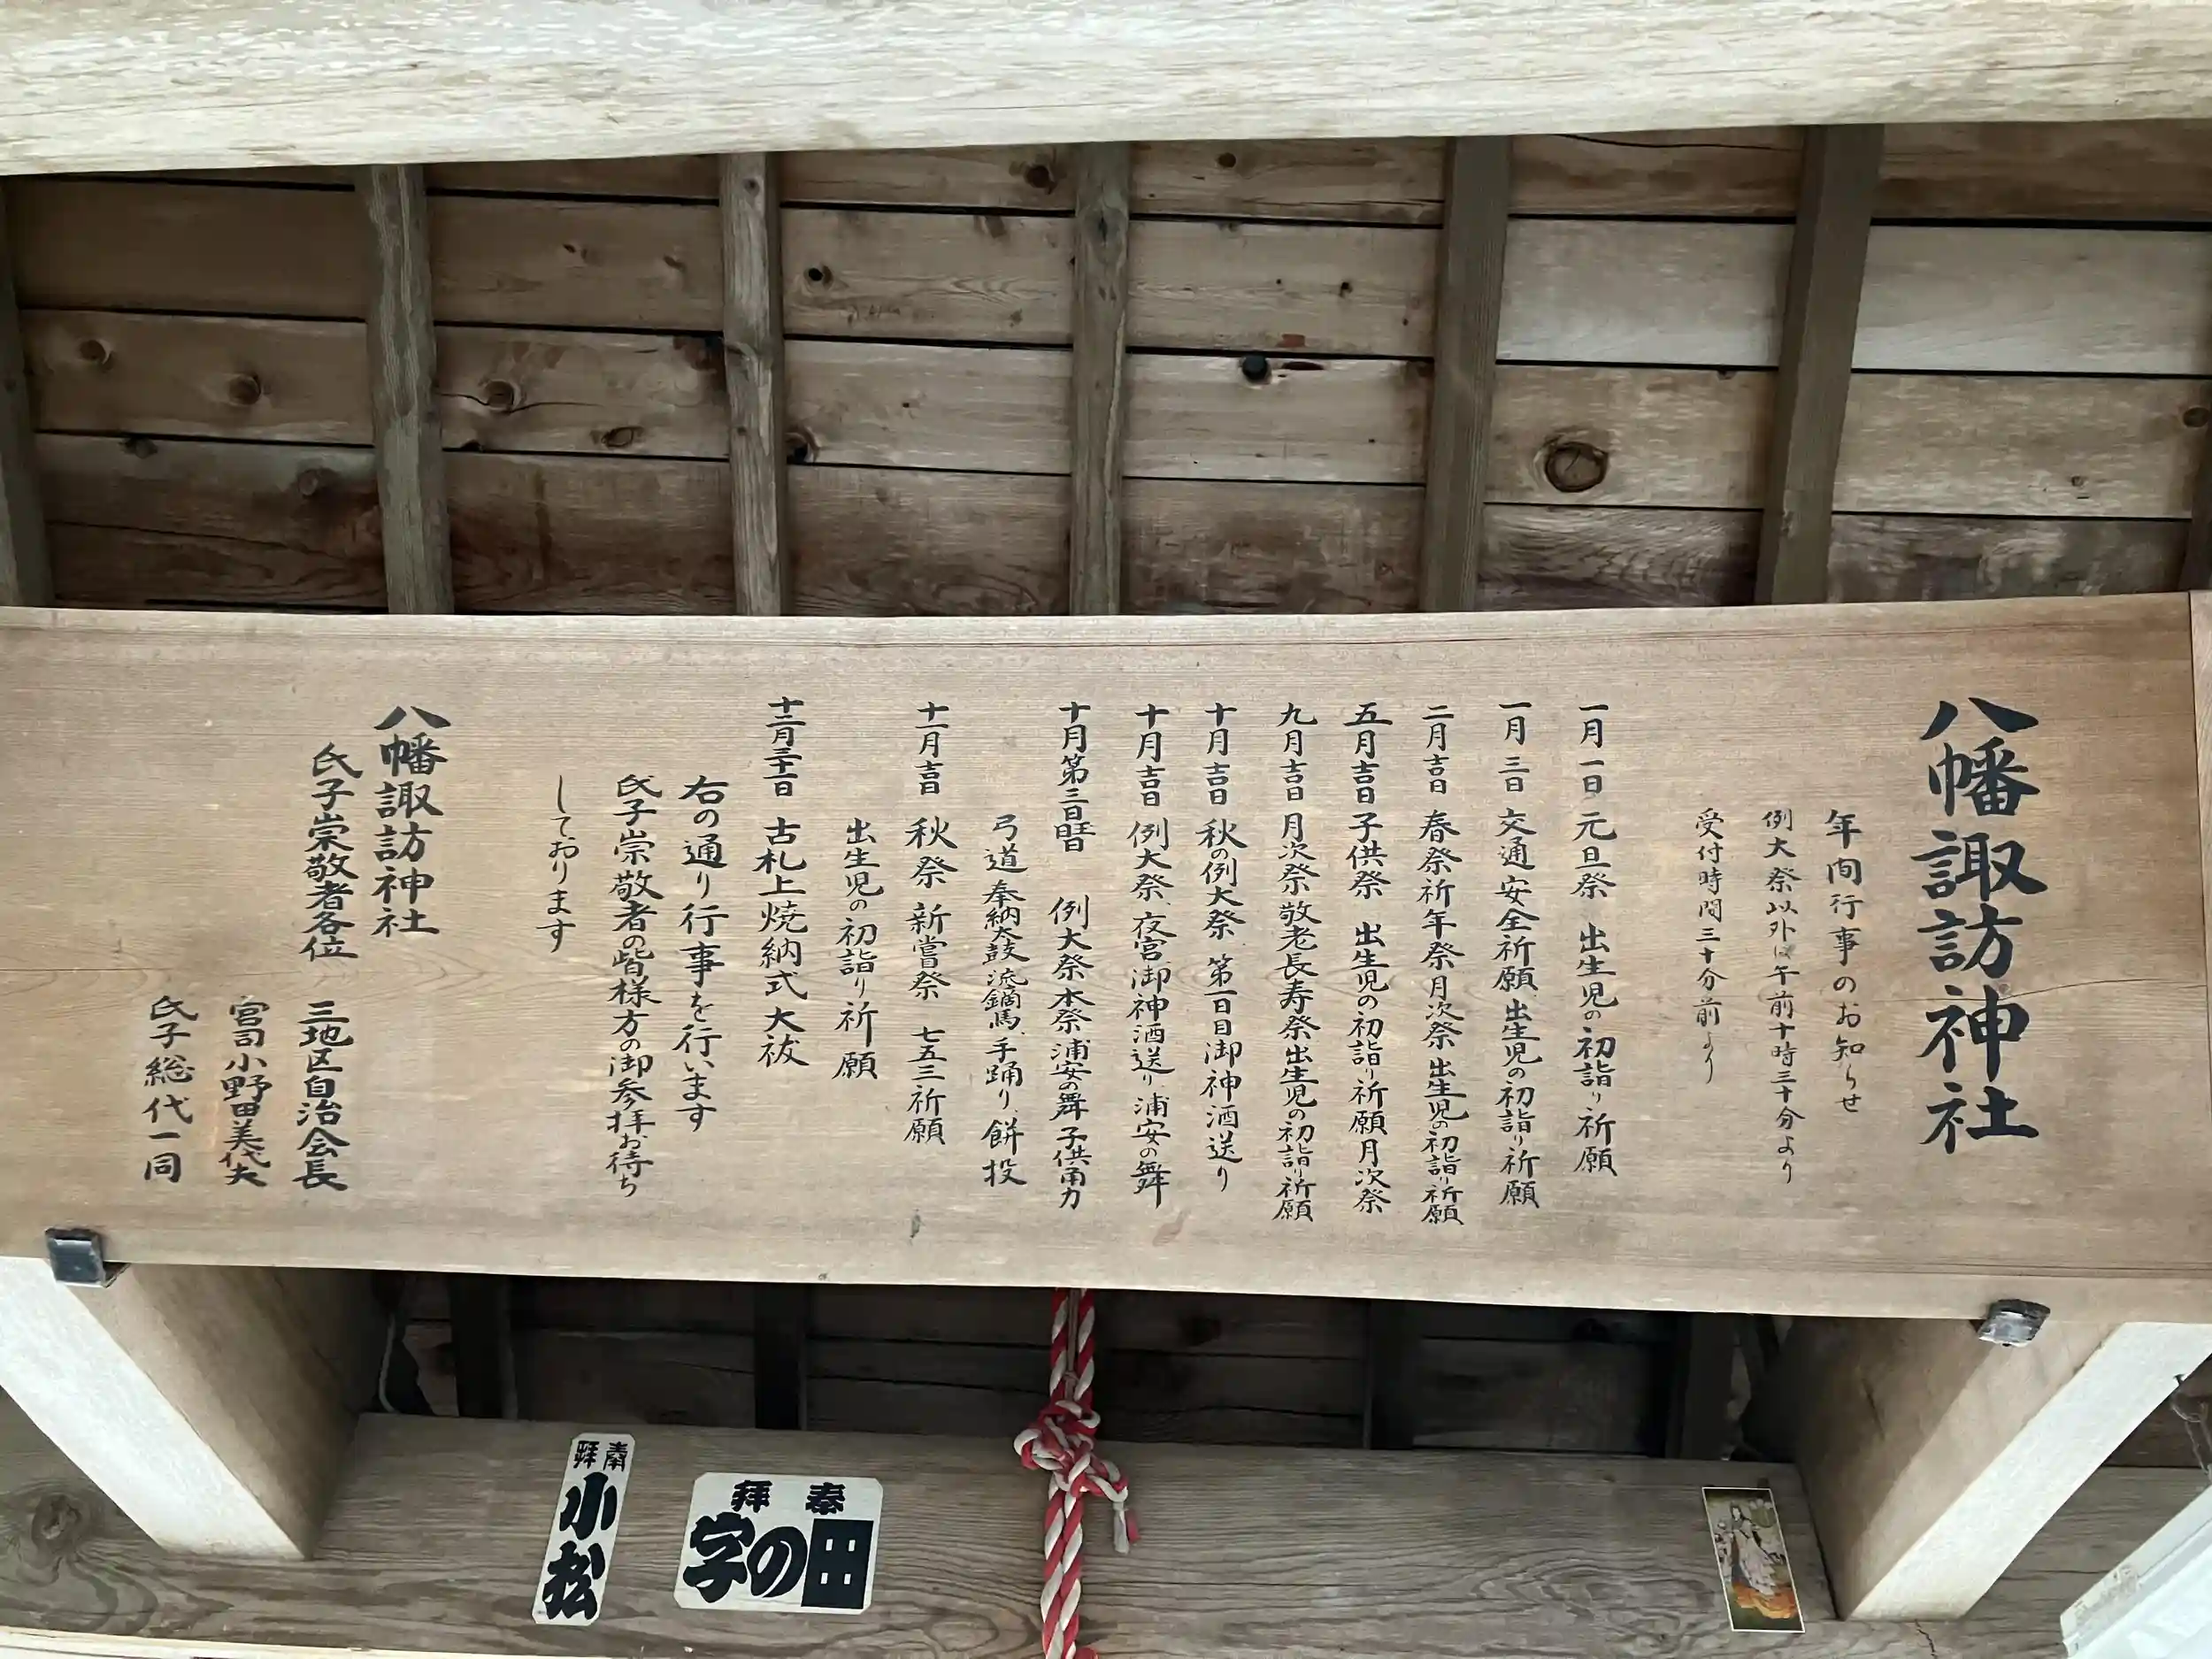 八幡諏訪神社
年間行事のお知らせ
例大祭以外は午前十時三十分より
受付時間三十分前より
一月一日 元旦祭 出生児の初詣り祈願
一月三日 交通安全祈願 出生児の初詣り祈願
二月吉日 春祭祈年祭月次祭 出生児の初詣り祈願
五月吉日 子供祭 出生児の初詣り祈願月次祭
九月吉日 月次祭敬老長寿祭出生児の初詣り祈願
十月吉日 秋の例大祭 第一日目御神酒送り
十月吉日 例大祭、夜宮御神酒送り、浦安の舞
十月第三日曜日 例大祭本祭浦安の舞子供角力
弓道 奉納太鼓 流鏑馬、手踊り、餅投
十一月吉日 秋祭 新嘗祭 七五三祈願
出生児の初詣り祈願
十二月三十一日 古札上焼納式 大祓
右の通り行事を行います
氏子崇敬者の皆様方の御参拝お待ち
しております
八幡諏訪神社
氏子崇敬者各位
三地区自治会長
宮司 小野田美代夫
氏子総代一同
奉拝
田の字
奉拝
小松